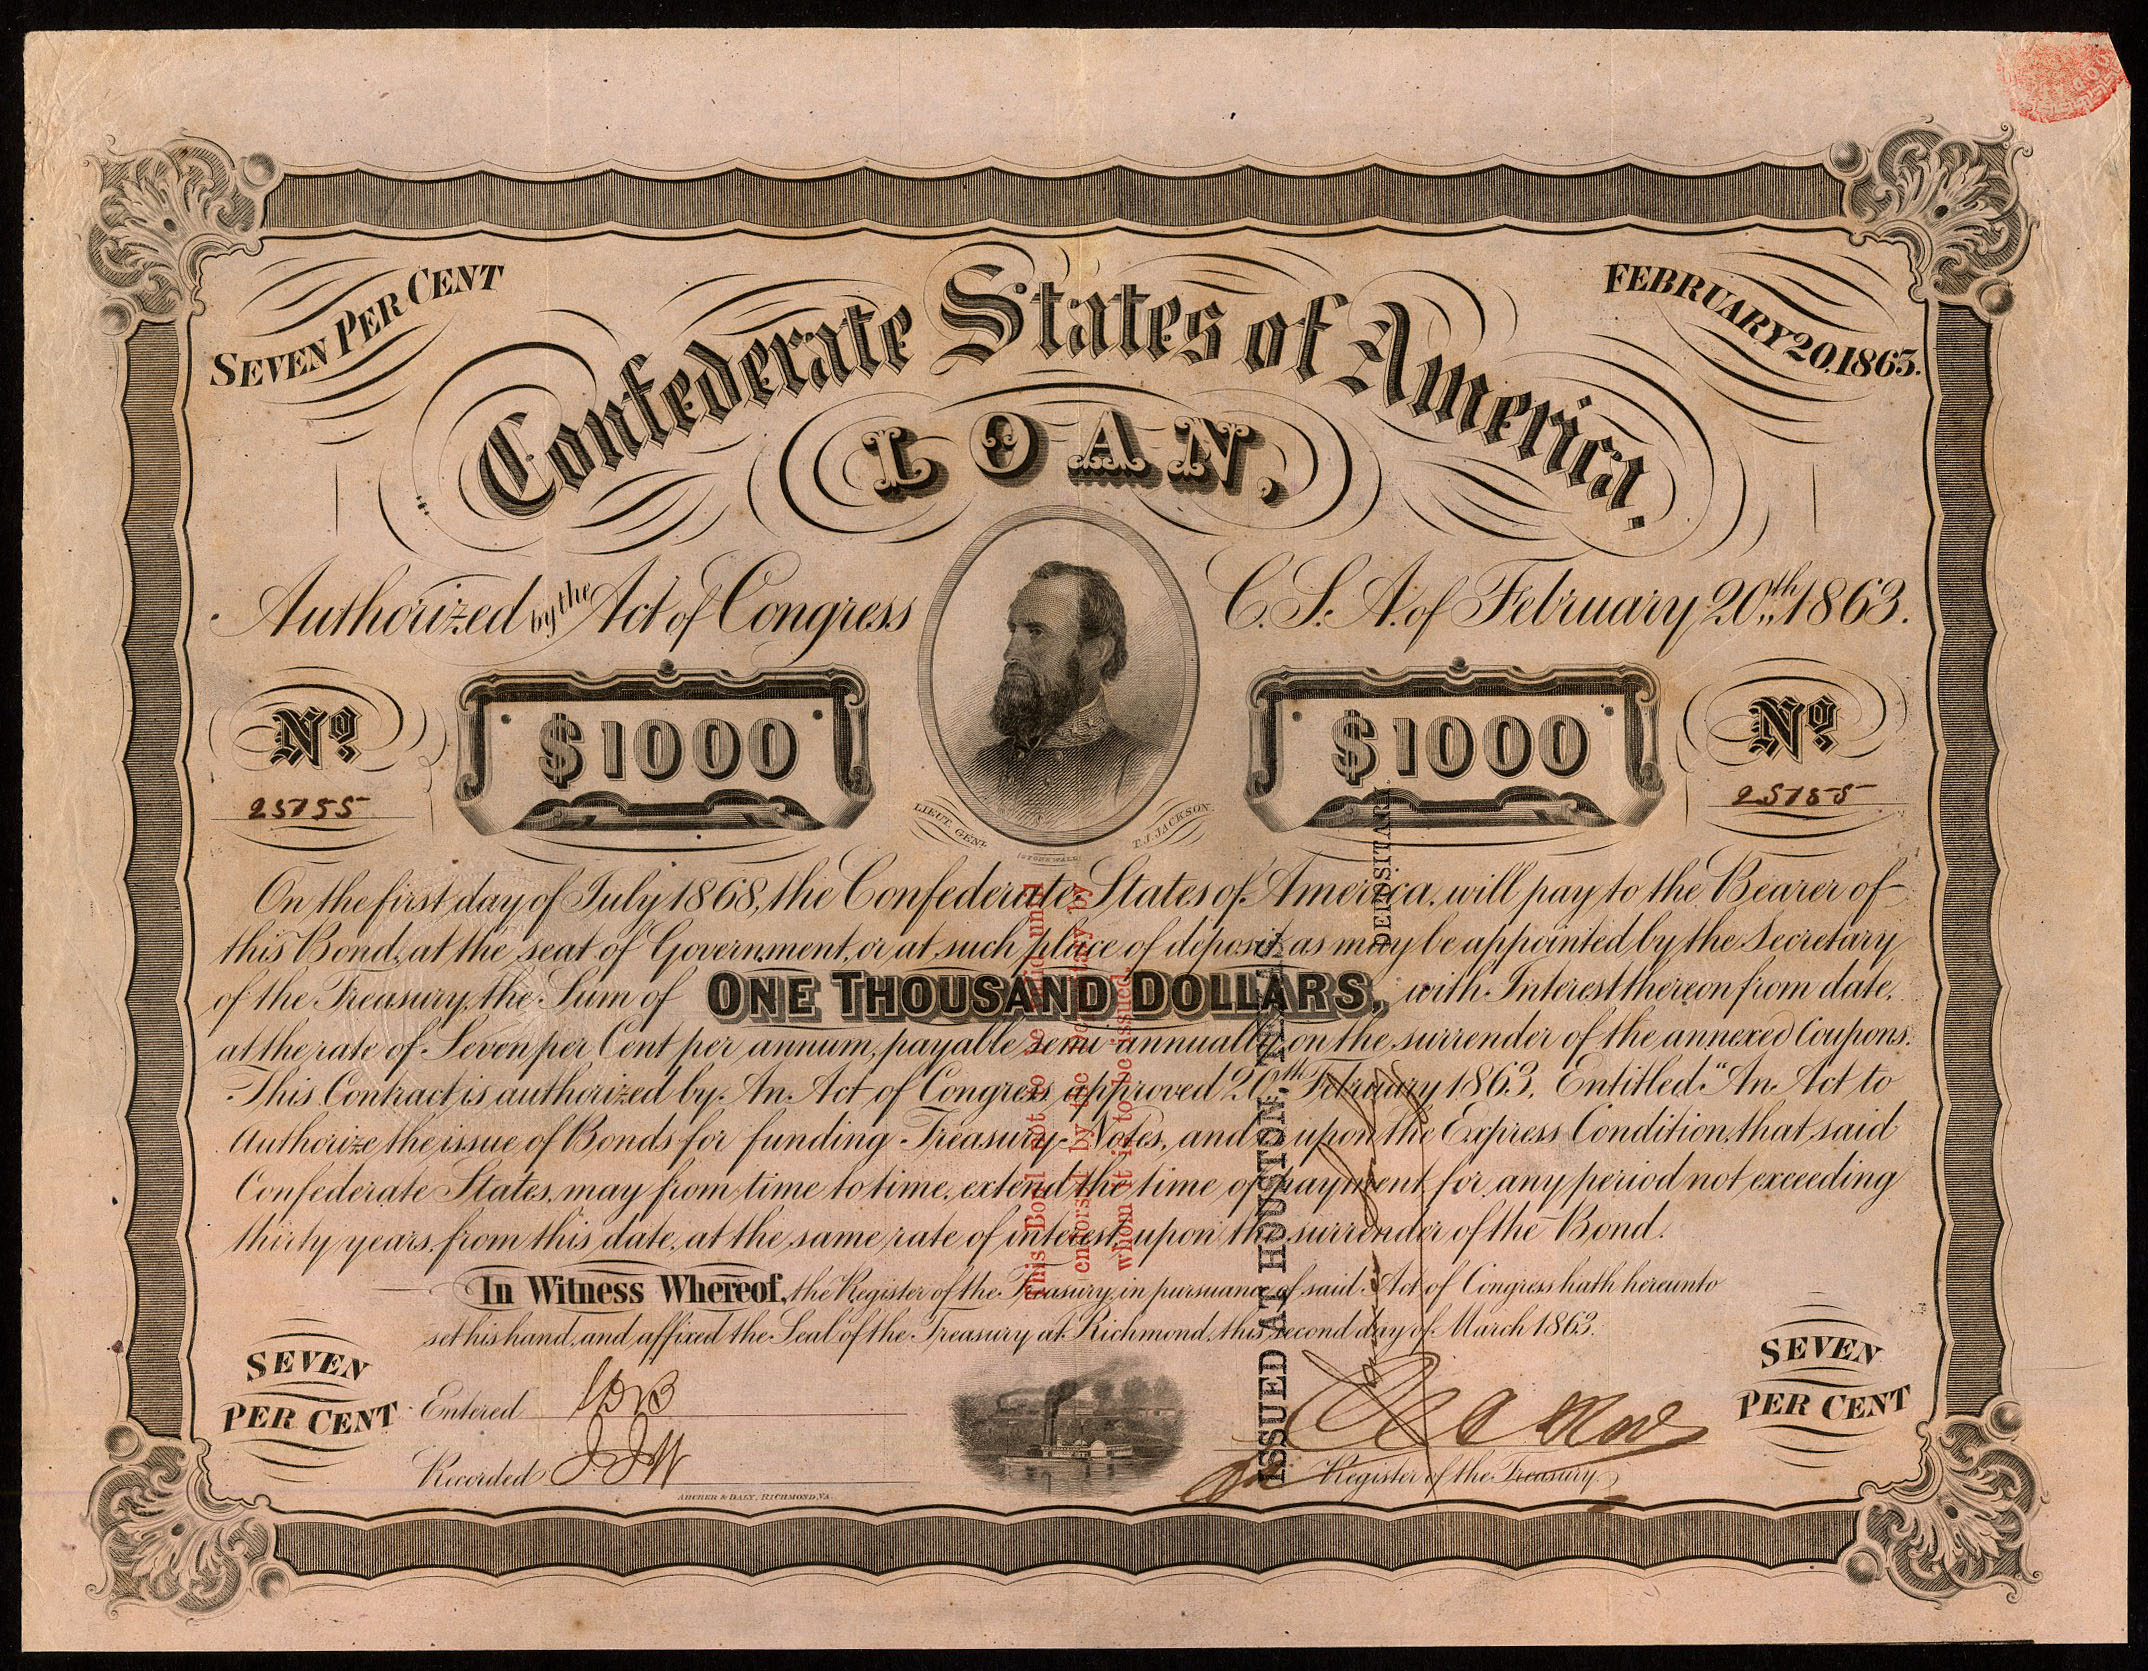 SEVEN PER CENT
FEBRUARY 20, 1863.
Confederate States of America.
LOAN,
Authorized by the Act of Congress C. S. A. of February 20th, 1863.
No.
$1000
$1000
No.
25755
25755
LIEUT. GENL.
(STONEWALL)
T. J. JACKSON.
On the first day of July 1868, the Confederate States of America, will pay to the Bearer of
this Bond, at the seat of Government, or at such place of deposit, as may be appointed by the Secretary
of the Treasury, the Sum of ONE THOUSAND DOLLARS, with Interest thereon from date,
at the rate of Seven per Cent per annum, payable semi annually, on the surrender of the annexed Coupons.
This Contract is authorized by An Act of Congress, approved 20th February 1863, Entitled "An Act to
Authorize the issue of Bonds for funding Treasury Notes, and is upon the Express Condition, that said
Confederate States, may from time to time, extend the time of payment for any period not exceeding
thirty years, from this date, at the same rate of interest, upon the surrender of the Bond.
In Witness Whereof, the Register of the Treasury, in pursuance of said Act of Congress hath hereunto
set his hand, and affixed the Seal of the Treasury at Richmond, this second day of March 1863.
This Bond not to be valid until
endorsed by the Depositary by
whom it is to be issued.
ISSUED AT HOUSTON, TEXAS.
DEPOSITARY.
SEVEN
PER CENT
Entered
Recorded
ARCHER & DALY, RICHMOND, VA.
Register of the Treasury.
SEVEN
PER CENT